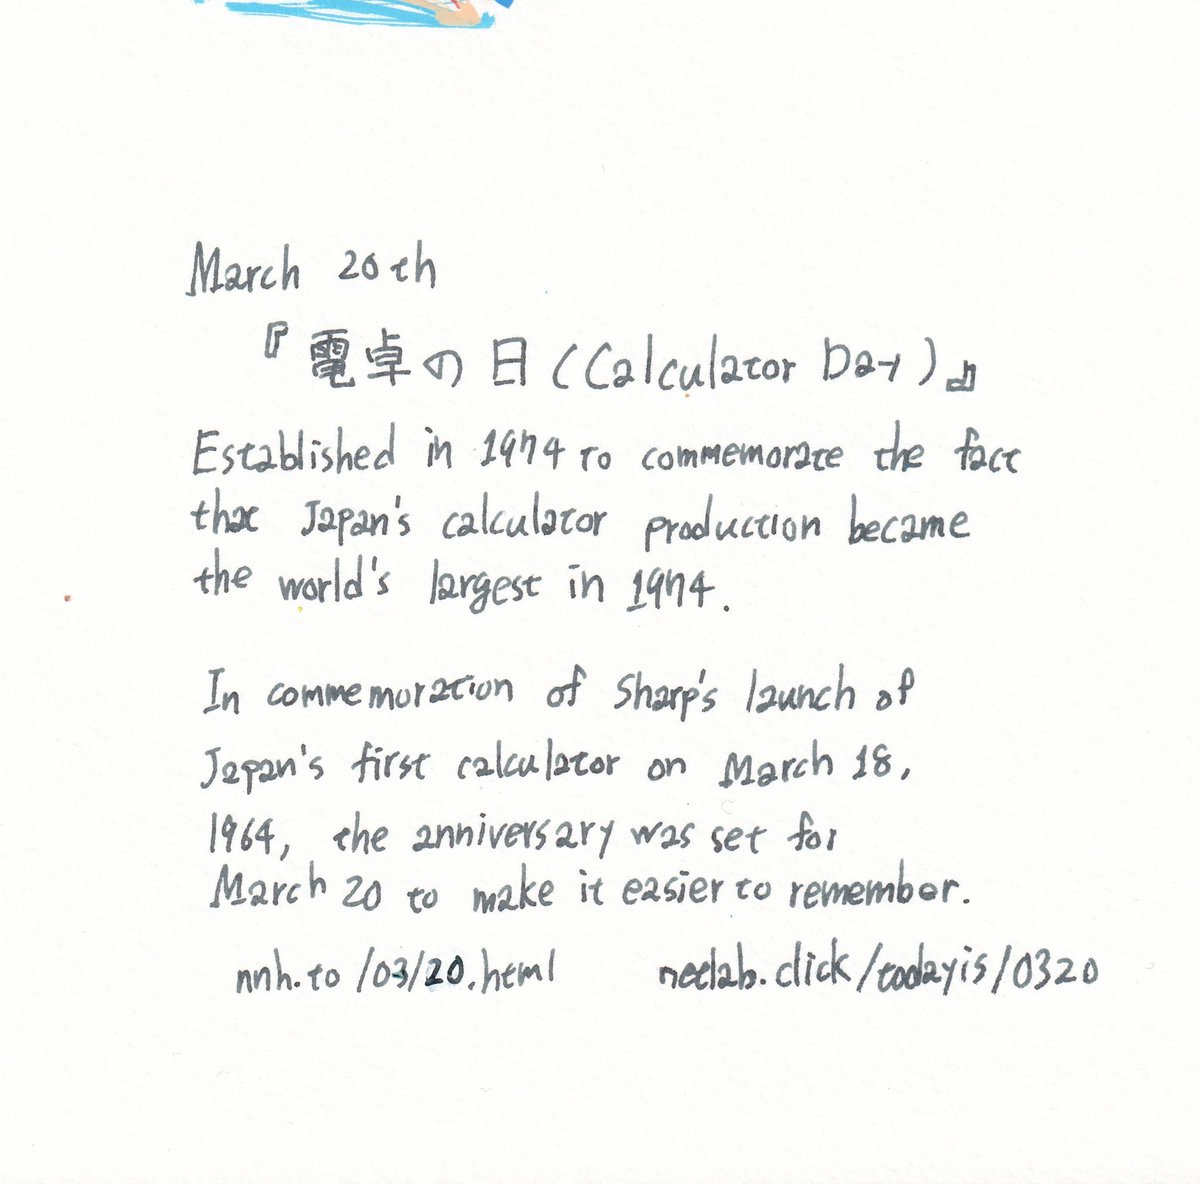 March 20th
『電卓の日(Calculator Day)』
Established in 1974 to commemorate the fact
that Japan's calculator production became
the world's largest in 1974.
In commemoration of Sharp's launch of
Japan's first calculator on March 18,
1964, the anniversary was set for
March 20 to make it easier to remember.
nnh.to/03/20.html netlab.click/todayis/0320